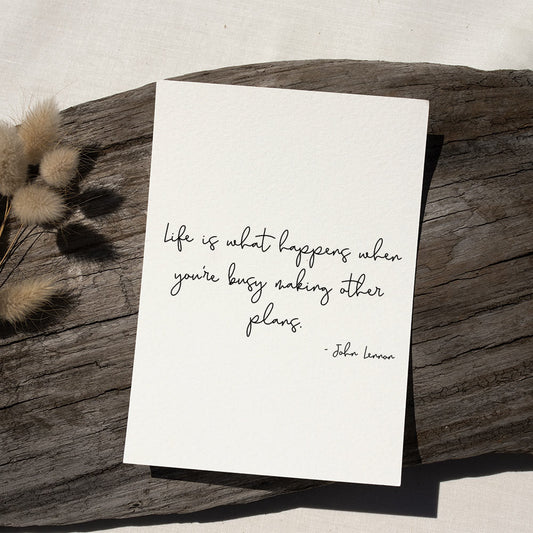 Life is what happens when
you're busy making other
plans.
- John Lennon